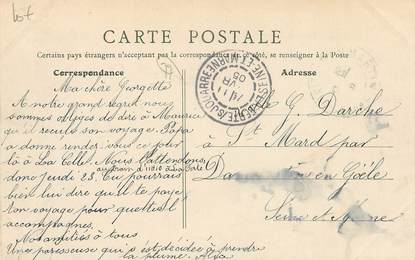 lot
CARTE POSTALE
Certains pays étrangers n'acceptant pas la correspondance de ce côté, se renseigner à la Poste
Correspondance
Adresse
Ma chère Georgette
A notre grand regret nous
sommes obligés de dire à Maurice
qu'il recule son voyage. Papa
a donné rendez-vous ce jour
là à La Celle. Nous l'attendons
donc Jeudi 28. Tu pourrais
au train d'11h10 à La Gare
bien lui dire qu'il te paye
ton voyage pour que tu l'
accompagnes.
Nos amitiés à tous
Une paresseuse qui s'est décidée à prendre
la plume.
G. Darche
à St Mard par
en Goële
Seine et Marne
LA FERTÉ-S-JOUARRE
SEINE-ET-MARNE
05